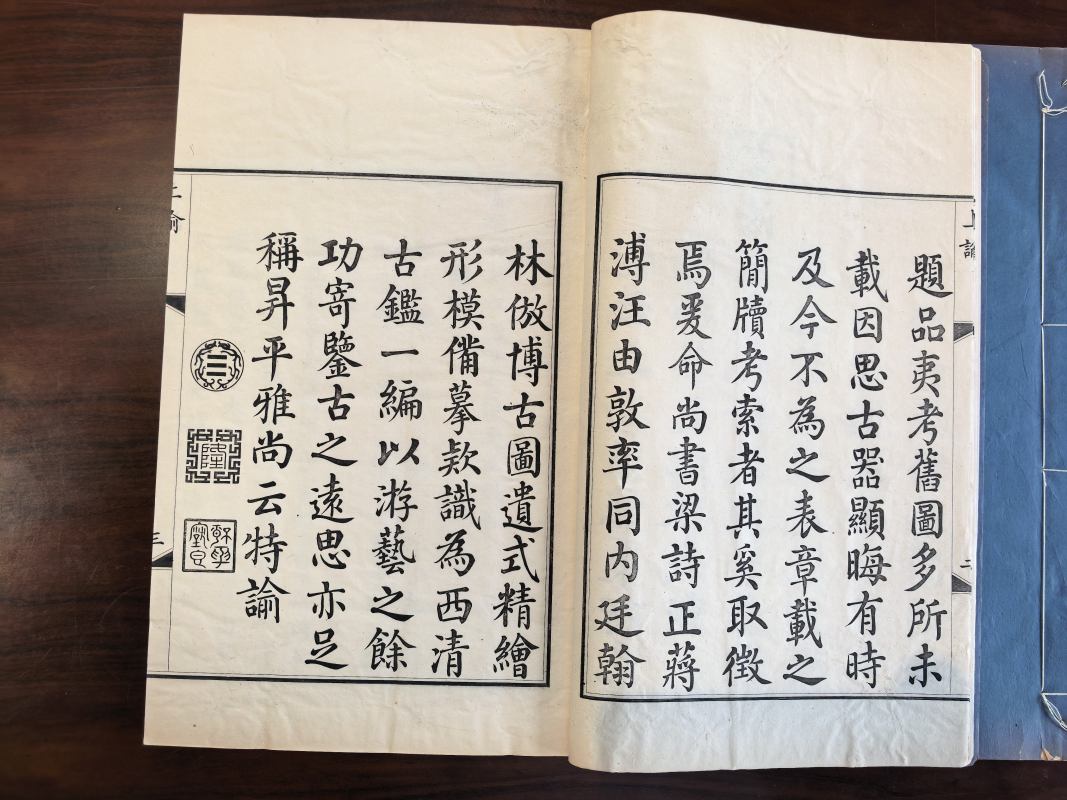 上諭
題品夷考舊圖多所未
載因思古器顯晦有時
及今不為之表章載之
簡牘考索者其奚取徵
焉爰命尚書梁詩正蔣
溥汪由敦率同内廷翰
林倣博古圖遺式精繪
形模備摹欵識為西清
古鑑一編以游藝之餘
功寄鑒古之遠思亦足
稱昇平雅尚云特諭
隆
三